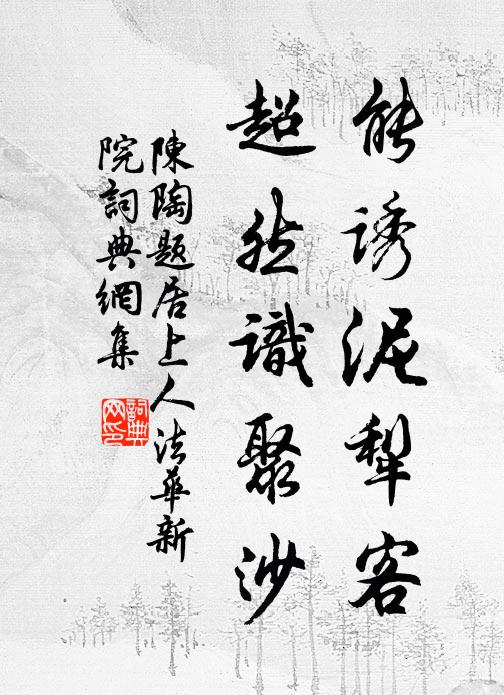 能诱泥犁客
超然識聚沙
陳陶題居上人法華新
院詞典網集
詞典
网印